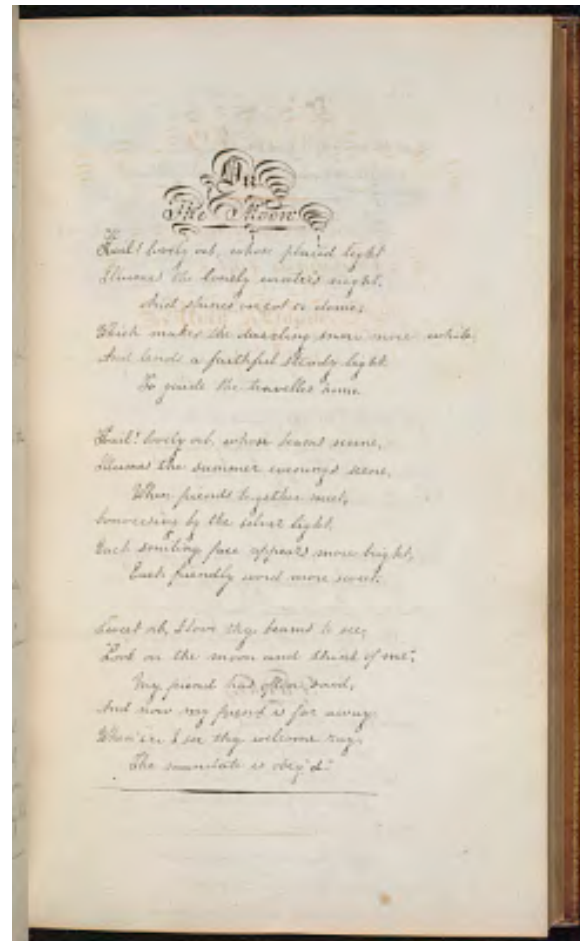 On
The Moon
Hail! lovely orb, whose placid light
Illumes the lonely winter's night,
And shines on cot or dome;
Which makes the dazzling snow more white,
And lends a faithful steady light
To guide the traveller home
Hail! lovely orb, whose beams serene,
Illumes the summer evening's scene,
When friends together meet,
Conversing by the silver light,
Each smiling face appears more bright,
Each friendly word more sweet.
Sweet orb, I love thy beams to see,
Look on the moon and think of me,
My friend had often said,
And now my friend is far away
When'e'er I see thy welcome ray,
The mandate is obey'd.